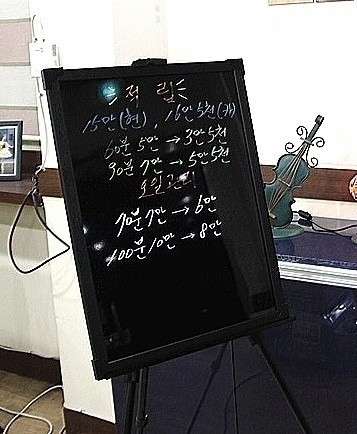 적립
15만(현) 16만5천(카)
60분 5만 → 3만5천
90분 7만 → 5만5천
오일관리
70분 7만 → 6만
100분 10만 → 8만